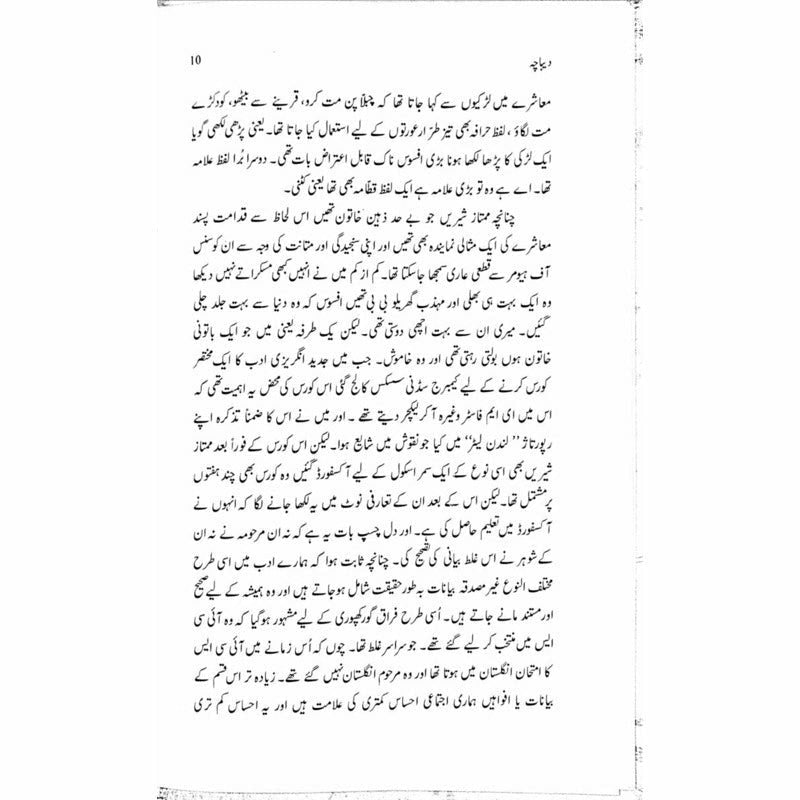 دیباچہ 10
معاشرے میں لڑکیوں سے کہا جاتا تھا کہ چبلّا پن مت کرو، قرینے سے بیٹھو، کودکڑے
مت لگاؤ ، لفظ حرافہ بھی تیز طرّار عورتوں کے لیے استعمال کیا جاتا تھا۔ یعنی پڑھی لکھی گویا
ایک لڑکی کا پڑھا لکھا ہونا بڑی افسوس ناک قابل اعتراض بات تھی۔ دوسرا بُرا لفظ علامہ
تھا۔ اے ہے وہ تو بڑی علامہ ہے ایک لفظ قطّامہ بھی تھا یعنی کٹنی۔
چنانچہ ممتاز شیریں جو بے حد ذہین خاتون تھیں اس لحاظ سے قدامت پسند
معاشرے کی ایک مثالی نمایندہ بھی تھیں اور اپنی سنجیدگی اور متانت کی وجہ سے ان کو سنس
آف ہیومر سے قطعی عاری سمجھا جاسکتا تھا۔ کم از کم میں نے انہیں کبھی مسکراتے نہیں دیکھا
وہ ایک بہت ہی بھلی اور مہذب گھریلو بی بی تھیں افسوس کہ وہ دنیا سے بہت جلد چلی
گئیں۔ میری ان سے بہت اچھی دوستی تھی۔ لیکن یک طرفہ یعنی میں جو ایک باتونی
خاتون ہوں بولتی رہتی تھی اور وہ خاموش۔ جب میں جدید انگریزی ادب کا ایک مختصر
کورس کرنے کے لیے کیمبرج سڈنی سسکس کالج گئی اس کورس کی محض یہ اہمیت تھی کہ
اس میں ای ایم فاسٹر وغیرہ آ کر لیکچر دیتے تھے ۔ اور میں نے اس کا ضمناً تذکرہ اپنے
رپورتاژ ’’لندن لیٹر‘‘ میں کیا جو نقوش میں شایع ہوا۔ لیکن اس کورس کے فوراً بعد ممتاز
شیریں بھی اسی نوع کے ایک سمر اسکول کے لیے آکسفورڈ گئیں وہ کورس بھی چند ہفتوں
پر مشتمل تھا۔ لیکن اس کے بعد ان کے تعارفی نوٹ میں یہ لکھا جانے لگا کہ انہوں نے
آکسفورڈ میں تعلیم حاصل کی ہے۔ اور دل چسپ بات یہ ہے کہ نہ ان مرحومہ نے نہ ان
کے شوہر نے اس غلط بیانی کی تصحیح کی۔ چنانچہ ثابت ہوا کہ ہمارے ادب میں اسی طرح
مختلف النوع غیر مصدقہ بیانات بہ طور حقیقت شامل ہوجاتے ہیں اور وہ ہمیشہ کے لیے صحیح
اور مستند مانے جاتے ہیں۔ اُسی طرح فراق گورکھپوری کے لیے مشہور ہوگیا کہ وہ آئی سی
ایس میں منتخب کر لیے گئے تھے۔ جو سراسر غلط تھا۔ چوں کہ اُس زمانے میں آئی سی ایس
کا امتحان انگلستان میں ہوتا تھا اور وہ مرحوم انگلستان نہیں گئے تھے۔ زیادہ تر اس قسم کے
بیانات یا افواہیں ہماری اجتماعی احساس کمتری کی علامت ہیں اور یہ احساس کم تری